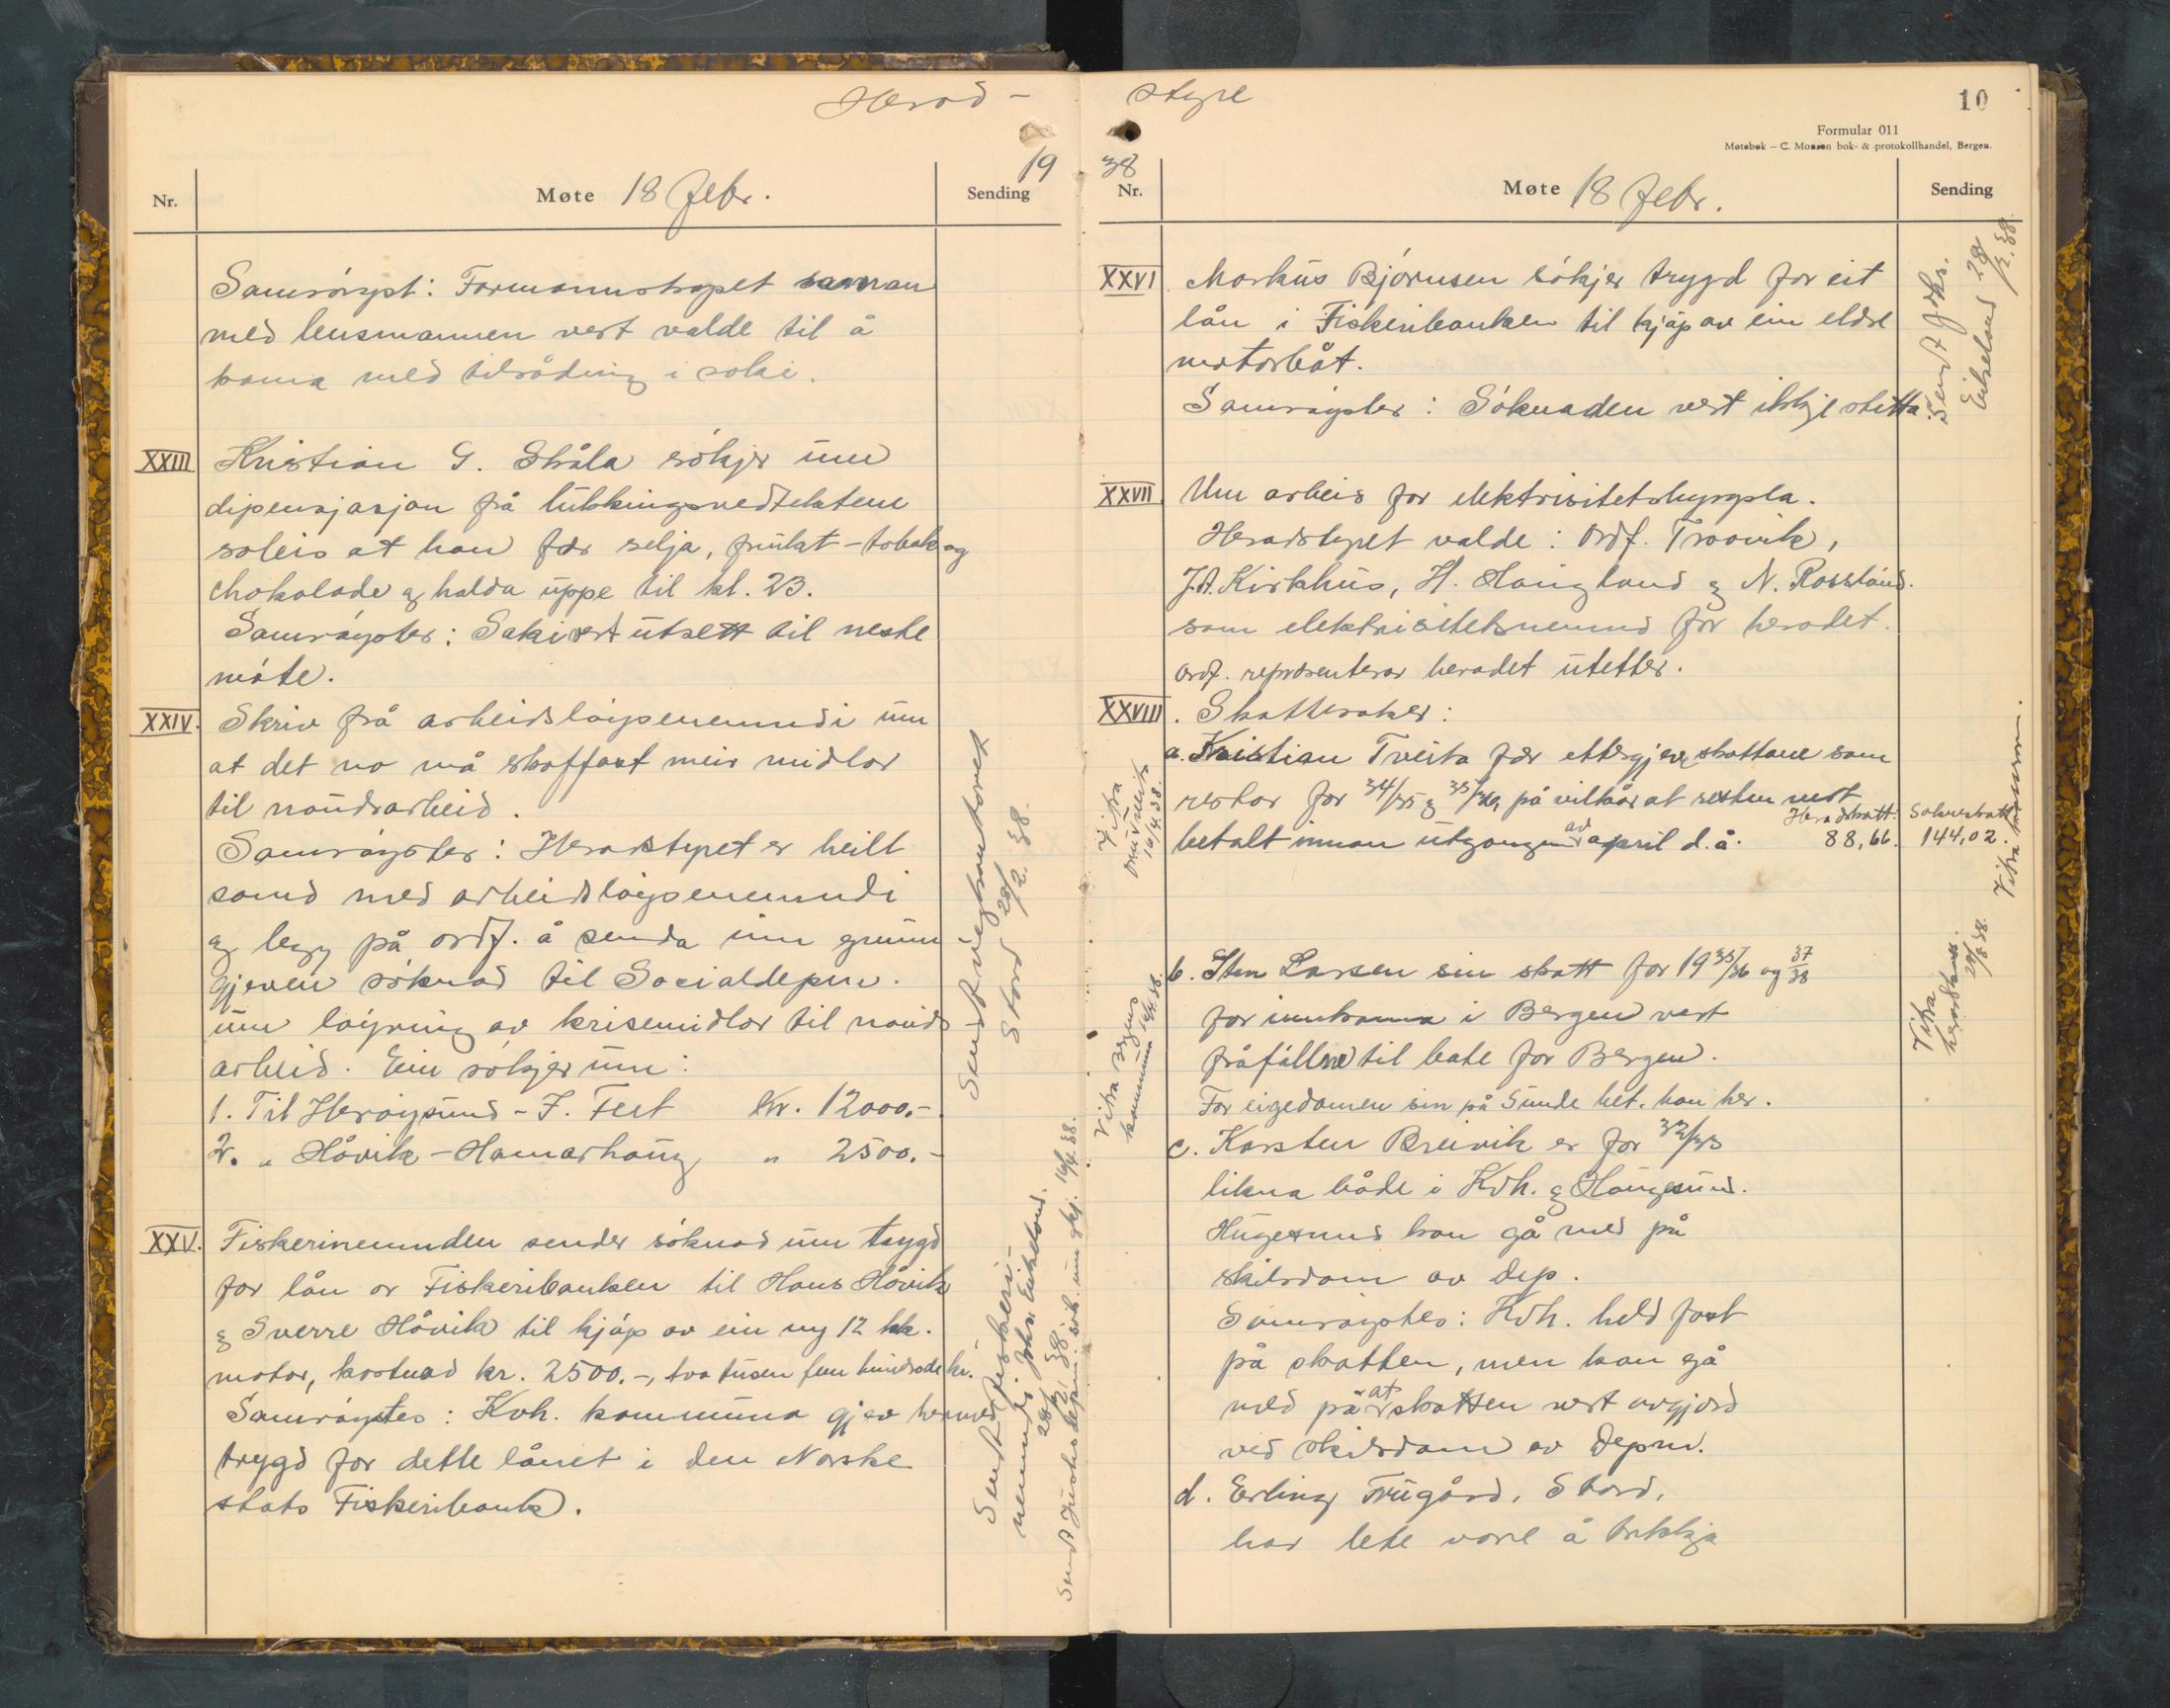 Herad -
19
Nr.
Møte 18 Febr.
Sending
Samrøyst: Formannskapet saman
med lensmannen vert valde til å
koma med tilråding i saki.
XXIII
Kristian G. Skåla søkjer um
dipensjasjon frå lukkingsvedtektene
soleis at han fær selja, frukt - tobak og
chokolade og halda uppe til kl. 23.
Samrøystes: Saki vert utsett til neste
møte.
XXIV.
Skriv frå arbeidsløysenemndi um
at det no må skaffast meir midlar
til naudsarbeid.
Samrøystes: Heradstyret er heilt
samd med arbeidsløysenemndi
og legg på ordf. å senda inn grunn
gjeven søknad til Socialdepm.
um løyving av krisemidlar til nauds-
arbeid. Ein søkjer um:
1. Til Herøysund - F. Feet Kr. 12000.-
2. „ Håvik - Hamarhaug „ 2500.-
Sendt vegkontoret
Stord 28/2 38.
XXV.
Fiskerinemnden sender søknad um trygd
for lån or Fiskeribanken til Hans Håvik
og Sverre Håvik til kjøp av ein ny 12 hk.
motor, kostnad kr. 2500.-, two tusen fem hundrade kr.
Samrøystes: Kvh. kommuna gjev hermed
trygd for dette lånet i den Norske
stats Fiskeribank.
Sendt fiskeri-
nemnda, Johs. Eikeland.
28/2 38.
Sendt Justisdepm. søk. um gkj. 16/4 38.
styre
10
Formular 011
Møtebok — C. Monsen bok- & protokollhandel, Bergen.
38
Nr.
Møte 18 Febr.
Sending
XXVI
Markus Bjørnsen søkjer trygd for eit
lån i Fiskeribanken til kjøp av ein eldre
motorbåt.
Samrøystes: Søknaden vert ikkje støtta.
Sendt Johs.
Eikeland 28/2. 38.
XXVII
Um arbeis for elektrisitetsbygsla.
Heradstyret valde: Ordf. Troovik,
J.A. Kirkhus, H. Haugland og N. Rossland.
som elektrisitetsnemnd for heradet.
Ordf. representerar heradet utetter.
XXVIII.
Skattesaker:
a. Kristian Tveita fær ettergjeve skattane som
restar for 34/35 og 35/36, på vilkår at resten vert
betalt innan utgangen av april d.å.
Heradskatt:
88,66.
Sokneskatt
144,02.
16/4.38.
b. Sten Larsen sin skatt for 1935/36 og 37/38
for innkoma i Bergen vert
fråfallne til bate for Bergen.
For eigedomen sin på Sunde bet. han her.
Vitra Bergens
kommune 16/4 38.
Vitra
heradskass.
c. Karsten Breivik er for 32/33
likna både i Kvh. og Haugesund.
Hugesund kan gå med på
skilsdom av Dep.
Samrøystes: Kvh. held fast
på skatten, men kan gå
med på at skatten vert avgjord
ved skilsdom av Depm.
d. Erling Trugård, Stord,
har lete vore å trekkja